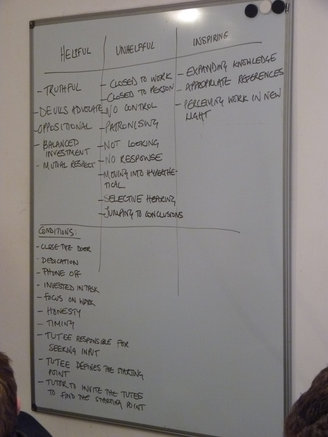 HELPFUL
- TRUTHFUL
- DEVILS ADVOCATE
- OPPOSITIONAL
- BALANCED
INVESTMENT
- MUTUAL RESPECT
UNHELPFUL
- CLOSED TO WORK
- CLOSED TO PERSON
- NO CONTROL
- PATRONISING
- NOT LOOKING
- NO RESPONSE
- MOVING INTO HYPOTHE-
TICAL
- SELECTIVE HEARING
- JUMPING TO CONCLUSIONS
INSPIRING
- EXPANDING KNOWLEDGE
- APPROPRIATE REFERENCES
- PERCEIVING WORK IN NEW
LIGHT
CONDITIONS:
- CLOSE THE DOOR
- DEDICATION
- PHONE OFF
- INVESTED IN TASK
- FOCUS ON WORK
- HONESTY
- TIMING
- TUTEE RESPONSIBLE FOR
SEEKING INPUT
- TUTEE DEFINES THE STARTING
POINT
- TUTOR TO INVITE THE TUTEE
TO FIND THE STARTING POINT